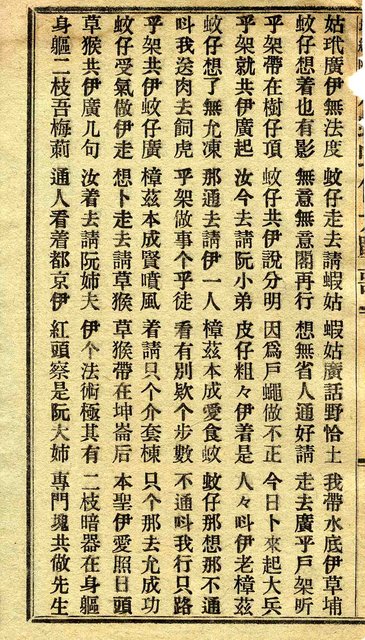 姑玳廣伊無法度 蚊仔走去請蝦姑 蝦姑廣話野恰土 我帶水底伊草埔
蚊仔想着也有影 無意無意閣再行 想無省人通好請 走去廣乎戶架听
乎架帶在樹仔頂 蚊仔共伊說分明 因為戶蠅做不正 今日卜來起大兵
乎架就共伊廣起 汝今去請阮小弟 皮仔粗々伊着是 人々呌伊老樟茲
蚊仔想了無允凍 那通去請伊一人 樟茲本成愛食蚊 蚊仔那想那不通
呌我送肉去飼虎 乎架做事个乎徒 看有別欵个步數 不通呌我行只路
乎架共伊蚊仔廣 樟茲本成賢噴風 着請只个介套棟 只个那去允成功
蚊仔受氣做伊走 想卜走去請草猴 草猴帶在坤崙后 本聖伊愛照日頭
草猴共伊廣几句 汝着去請阮姊夫 伊个法術極其有 二枝暗器在身軀
身軀二枝吾梅莿 通人看着都京伊 紅頭察是阮大姉 專門塊共做先生